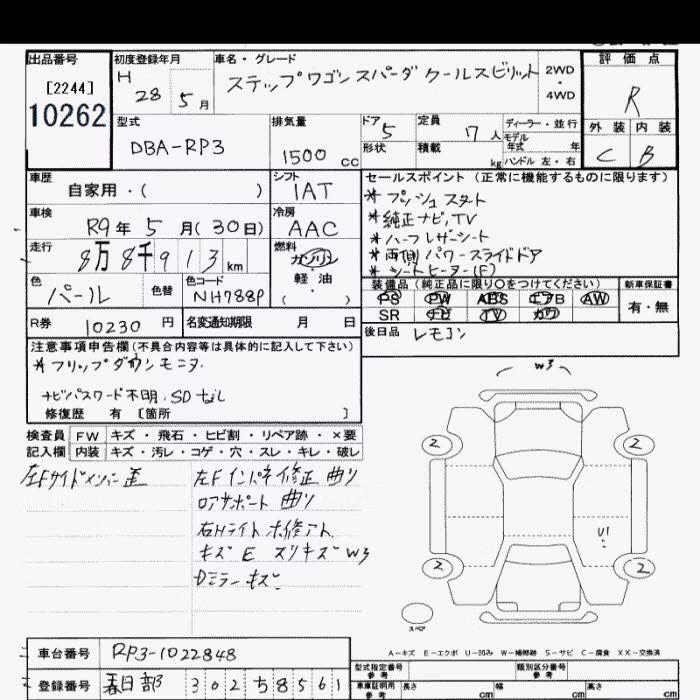 出品番号 初度登録年月 車名・グレード 評価点
[2244] H 28 5月 ステップワゴン スパーダ クールスピリット 2WD・4WD R
10262 外装 内装
型式 排気量 ドア 5 定員 7人 ディーラー・並行
DBA-RP3 1500cc 形状 積載 kg モデル年式 年 ハンドル 左・右 C B
車歴 シフト セールスポイント (正常に機能するものに限ります)
自家用・( ) IAT *プッシュスタート
車検 冷房 *純正ナビ,TV
R9年5月(30日) AAC *ハーフレザーシート
走行 燃料 *両側パワースライドドア
8万8千913km ガソリン・軽油 ( ) *シートヒーター(F)
色 色替 色コード 装備品 (純正品に限り○をつけてください) 新車保証書
パール NH788P PS PW ABS エアB AW 有・無
SR ナビ TV カワ
R券 10230円 名変通知期限 月 日 後日品 レモコン
注意事項申告欄(不具合内容等は具体的に記入して下さい)
*フリップダウンモニタ.
ナビパスワード不明.SDなし
修復歴 有 [箇所 ]
W3
検査員 FW キズ・飛石・ヒビ割・リペア跡・×要
記入欄 内装 キズ・汚レ・コゲ・穴・スレ・キレ・破レ
左Fサイドメンバー歪 左Fインパネ修正 曲リ
ロアサポート 曲リ
右Hライト ホ修アト.
キズ E スリキズ W3
Dミラーキズ
2 2
U1
2 2
スペア
A-キズ E-エクボ U-凹み W-補修跡 S-サビ C-腐食 XX-交換済
車台番号 RP3-1022848
型式指定番号 参考 類別区分番号 参考
登録番号 春日部 302 5 8561
車庫証明用 参考 長さ cm 幅 cm 高さ cm